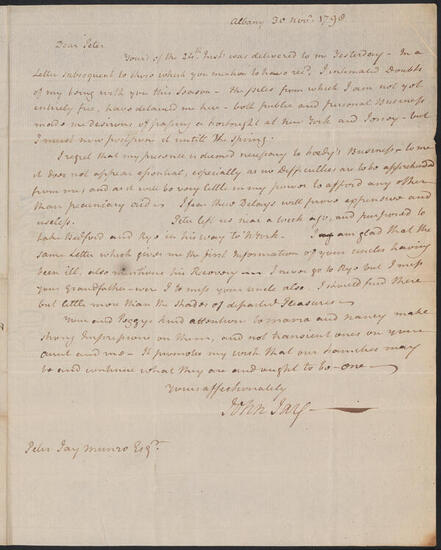 Albany 30 Novr. 1798
Dear Peter
Yours of the 24th. Inst. was delivered to me Yesterday — In a
Letter subsequent to those which you mention to have recd. I intimated Doubts
of my being with you this Season — the piles from which I am not yet
entirely free, have detained me here — both public and personal Business
made me desirous of passing a fortnight at New York and Jersey — but
I must now postpone it untill the Spring.
I regret that my presence is deemed necessary to Business — to me
it does not appear essential, especially as no Difficulties are to be apprehended
from me; and as it will be very little in my power to afford any other
than pecuniary aid. I fear these Delays will prove expensive and
useless. Peter left us near a week ago, and purposed to
take Bedford and Rye in his way to N York — I am glad that the
same Letter which gives me the first Information of your uncles having
been ill, also mentions his Recovery — I never go to Rye but I miss
your Grandfather — were I to miss your uncle also, I should find there
but little more than the Shades of departed Pleasures —
Your and Peggys kind attention to maria and nancy make
strong Impressions on them, and not transient ones on your
aunt and me — It promotes my wish that our Families may
be and continue what they are and ought to be — one —
Yours affectionately
John Jay
Peter Jay Munro Esqr.